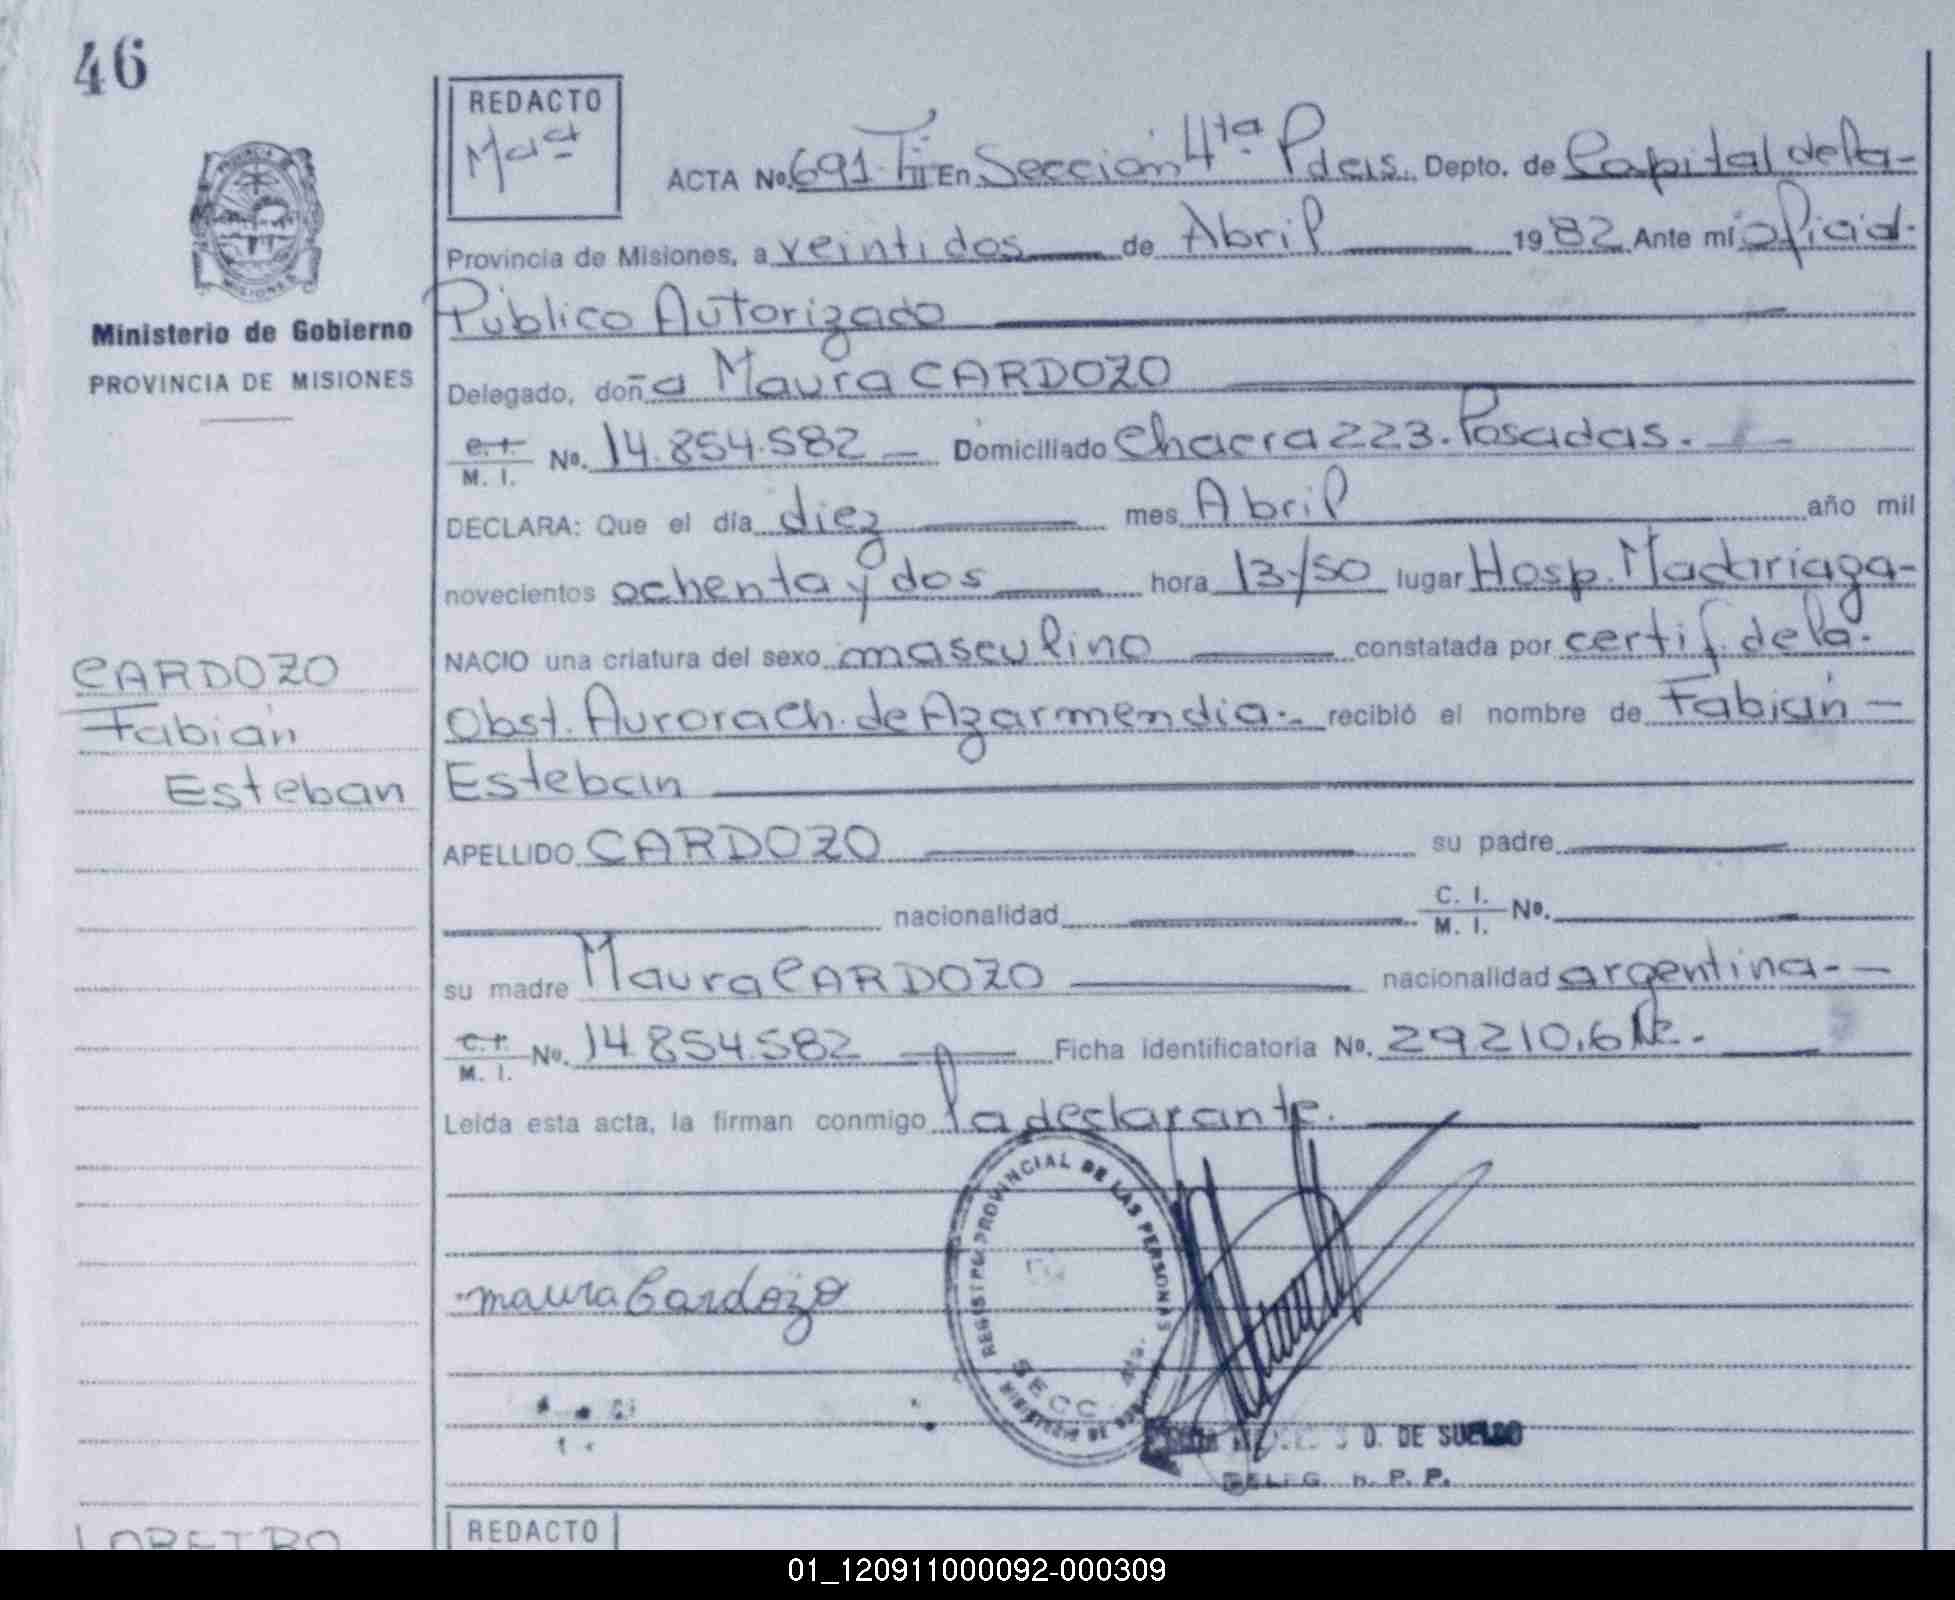 46
REDACTO
ACTA Nº. 691. TII En Sección 4ta. Pdas. Depto. de Capital de la-
Provincia de Misiones, a veintidos de Abril 1982 Ante mí oficial.
Público Autorizado
Ministerio de Gobierno
PROVINCIA DE MISIONES
Delegado, doña Maura CARDOZO
M. I. Nº. 14.854.582 Domiciliado Chacra 223. Posadas.
DECLARA: Que el día diez mes Abril año mil
novecientos ochenta y dos hora 13/50 lugar Hosp. Madariaga-
NACIO una criatura del sexo masculino constatada por certif. de la.
Obst. Aurora Ch. de Azarmendia.- recibió el nombre de Fabián
Esteban
CARDOZO
Fabián
Esteban
APELLIDO CARDOZO su padre
nacionalidad C. I. M. I. Nº.
su madre Maura CARDOZO nacionalidad argentina.-
M. I. Nº. 14.854.582 Ficha identificatoria Nº. 29210.6
Leída esta acta, la firman conmigo la declarante.
REGISTRO PROVINCIAL DE LAS PERSONAS
SECC
MINISTERIO DE
maura Cardozo
D. DE SUELDO
DELEG. R. P. P.
REDACTO
01_120911000092-000309